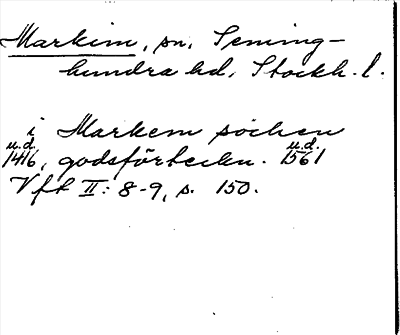 Markim, sn, Seming-
hundra hd, Stockh. l.
i Markem sochen
u.d. 1416, godsförteckn. u.d. 1561
Vft II: 8-9, s. 150.